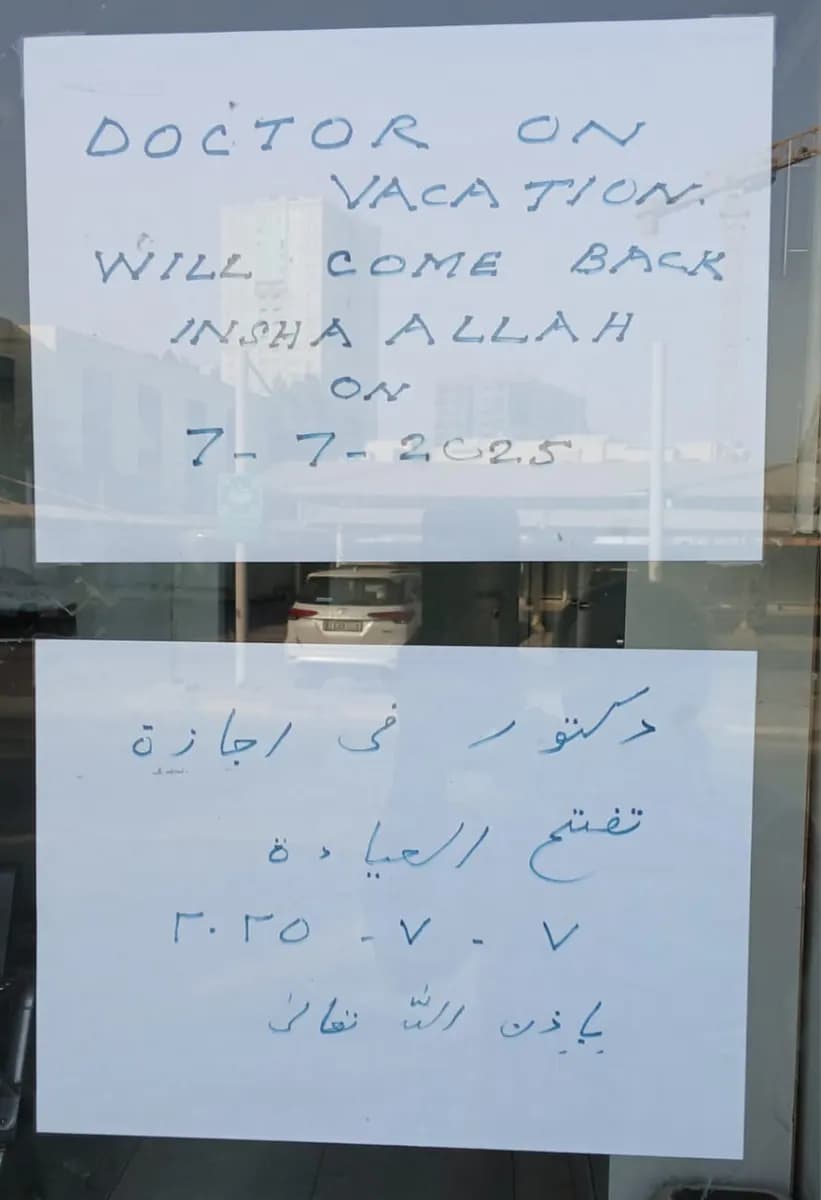 DOCTOR ON
VACATION.
WILL COME BACK
INSHA ALLAH
ON
7-7-2025
دكتور فى اجازة
تفتح العيادة
٧ - ٧ - ٢٠٢٥
بإذن الله تعالى